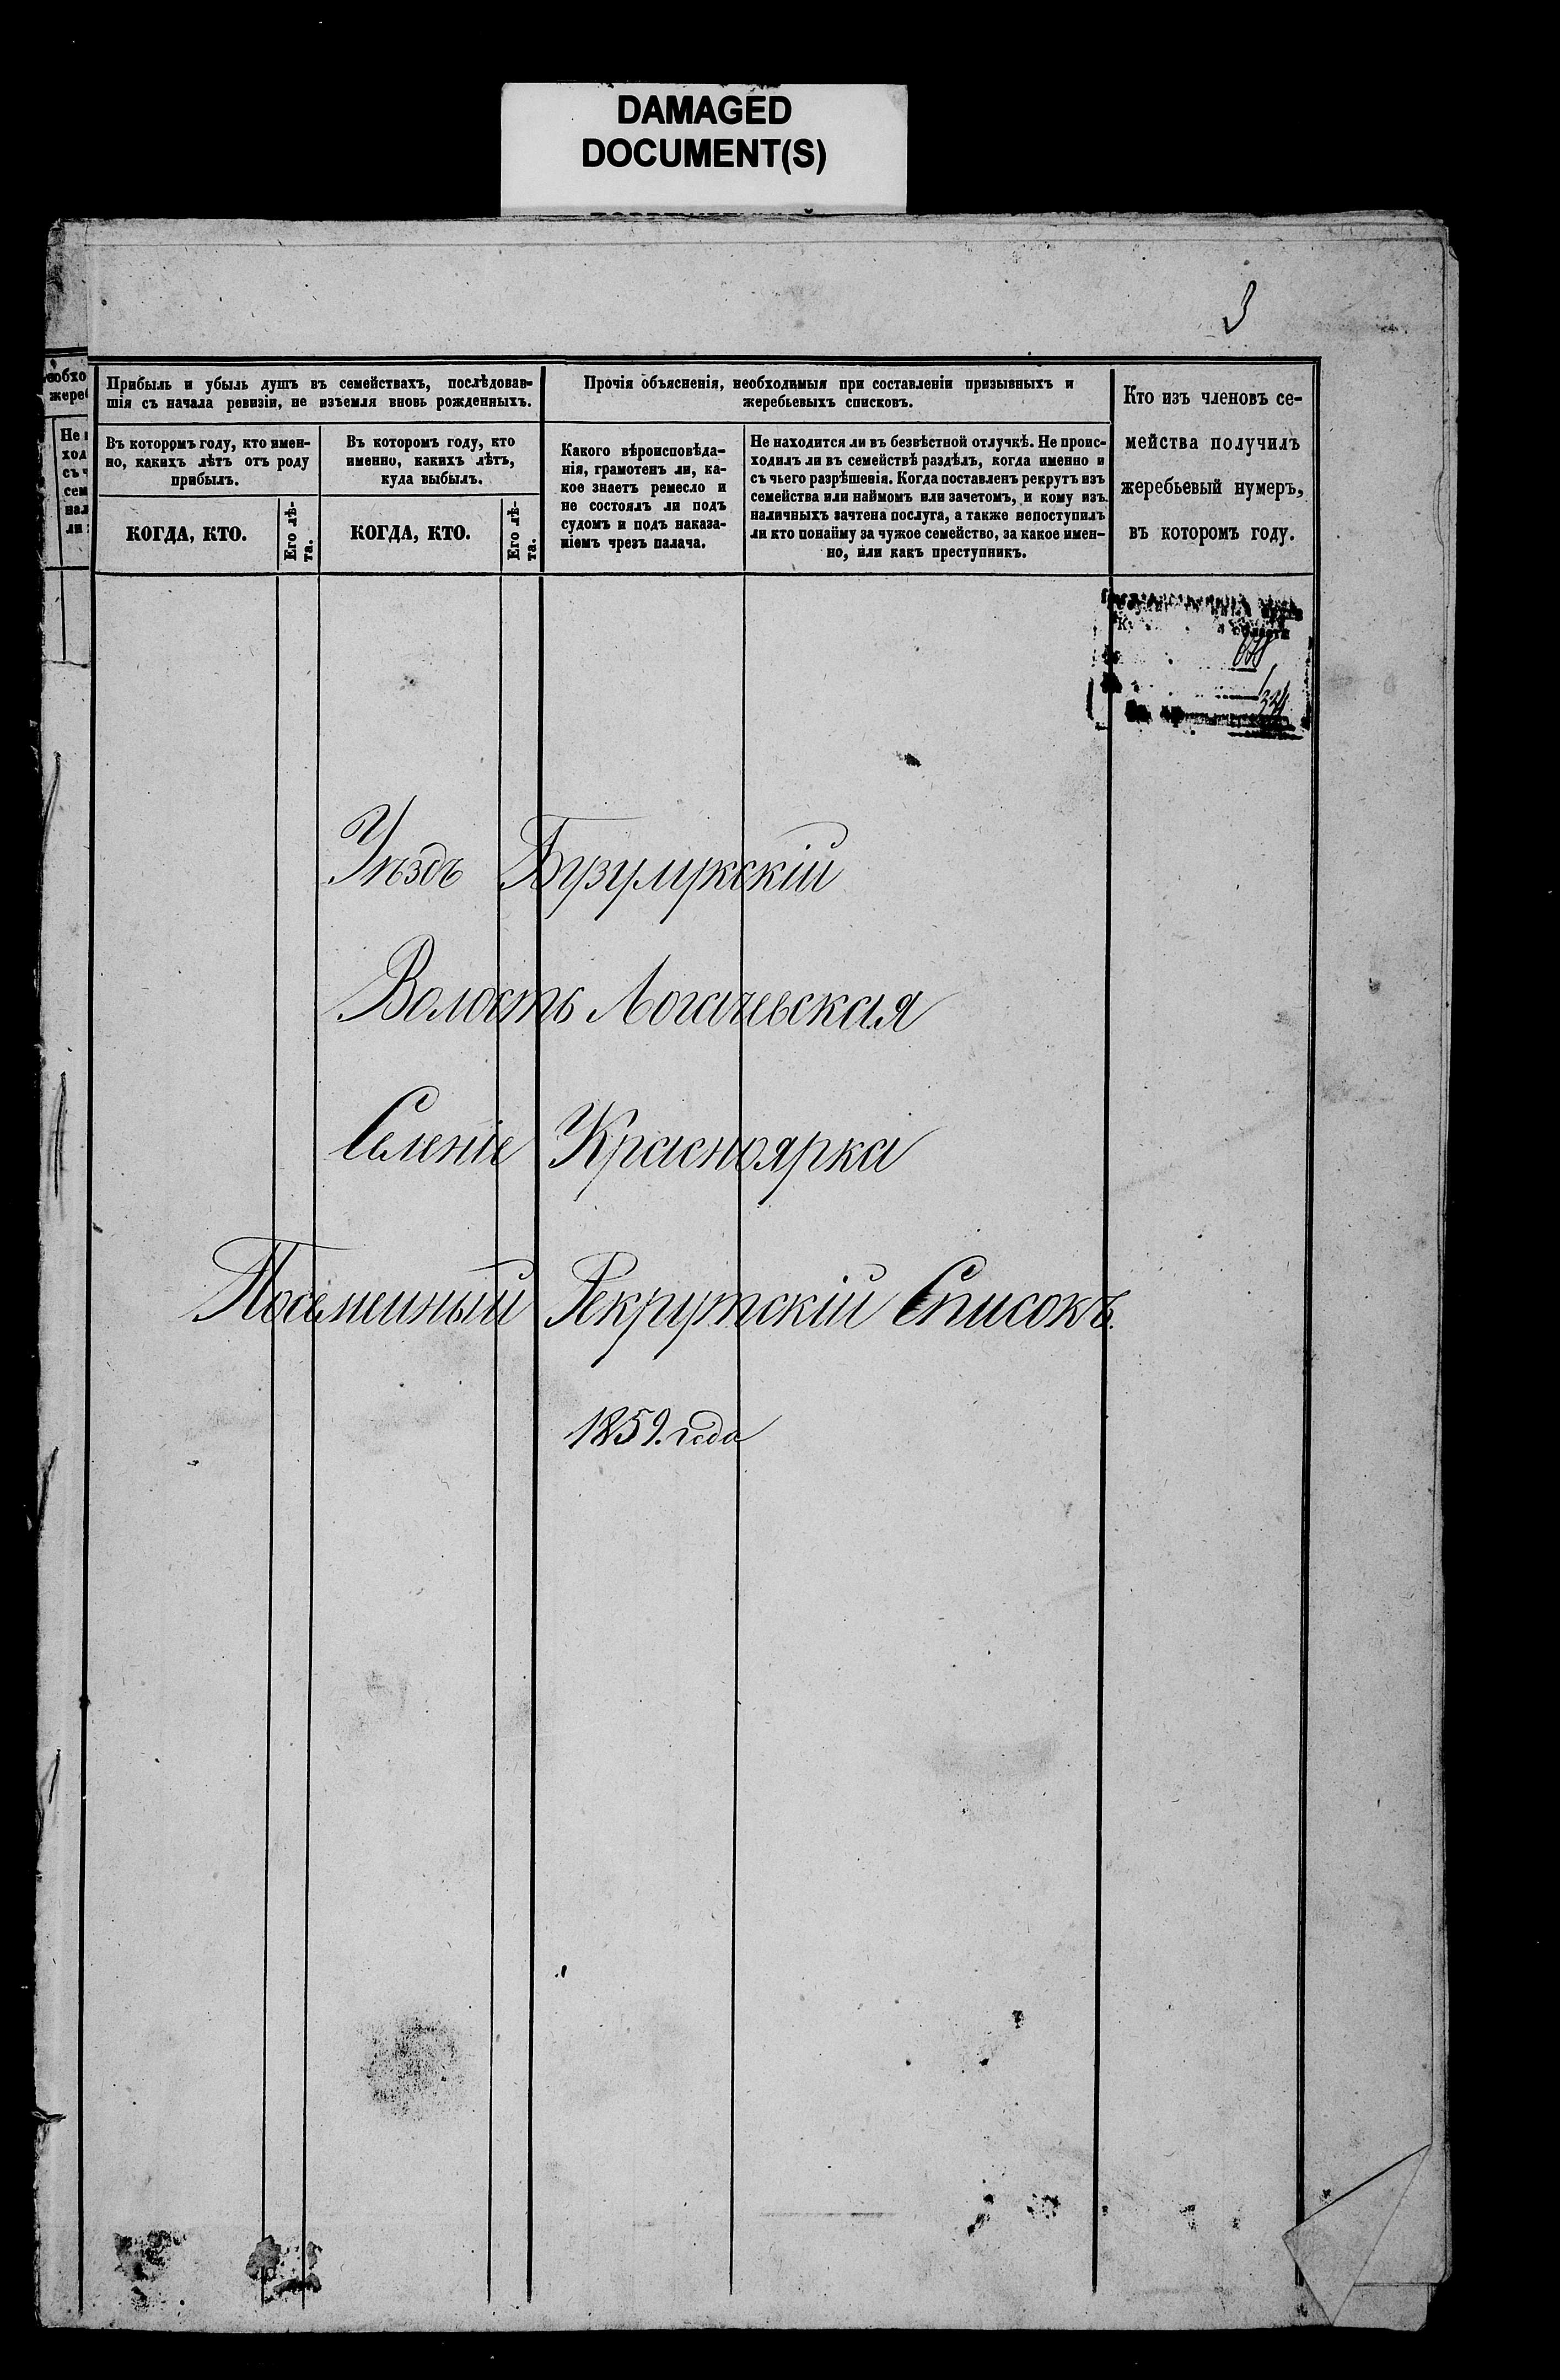 DAMAGED
DOCUMENT(S)
3
Прибыль и убыль душъ въ семействахъ, послѣдовав-
шія съ начала ревизіи, не изъемля вновь рожденныхъ.
Въ которомъ году, кто имен-
но, какихъ лѣтъ отъ роду
прибылъ.
КОГДА, КТО.
Его лѣ-
та.
Въ которомъ году, кто
именно, какихъ лѣтъ,
куда выбылъ.
КОГДА, КТО.
Его лѣ-
та.
Прочія объясненія, необходимыя при составленіи призывныхъ и
жеребьевыхъ списковъ.
Какого вѣроисповѣда-
нія, грамотенъ ли, ка-
кое знаетъ ремесло и
не состоялъ ли подъ
судомъ и подъ наказа-
ніемъ чрезъ палача.
Не находится ли въ безвѣстной отлучкѣ. Не проис-
ходилъ ли въ семействѣ раздѣлъ, когда именно и
съ чьего разрѣшенія. Когда поставленъ рекрутъ изъ
семейства или наймомъ или зачетомъ, и кому изъ
наличныхъ зачтена послуга, а также непоступилъ
ли кто понайму за чужое семейство, за какое имен-
но, или какъ преступникъ.
Кто изъ членовъ се-
мейства получилъ
жеребьевый нумеръ,
въ которомъ году.
Уѣздъ Бузулукскій
Волость Логачевская
Селеніе Красноярка
Посемейный Рекрутскій Списокъ.
1859. года